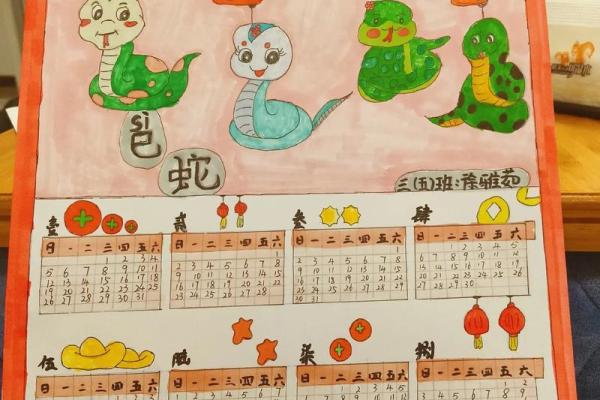 sì
巳
蛇
三(五)班:徐雅茹
壹
日 一 二 三 四 五 六
1 2 3 4
5 6 7 8 9 10 11
12 13 14 15 16 17 18
19 20 21 22 23 24 25
26 27 28 29 30 31
贰
日 一 二 三 四 五 六
1
2 3 4 5 6 7 8
9 10 11 12 13 14 15
16 17 18 19 20 21 22
23 24 25 26 27 28
叁
日 一 二 三 四 五 六
1
2 3 4 5 6 7 8
9 10 11 12 13 14 15
16 17 18 19 20 21 22
23 24 25 26 27 28 29
30 31
肆
日 一 二 三 四 五 六
1 2 3 4 5
6 7 8 9 10 11 12
13 14 15 16 17 18 19
20 21 22 23 24 25 26
27 28 29 30
伍
日 一 二 三 四 五 六
1 2 3
陆
日 一 二 三 四 五 六
1 2 3 4 5 6 7
柒
日 一 二 三 四 五 六
1 2 3 4 5
捌
日 一 二 三 四 五 六
1 2